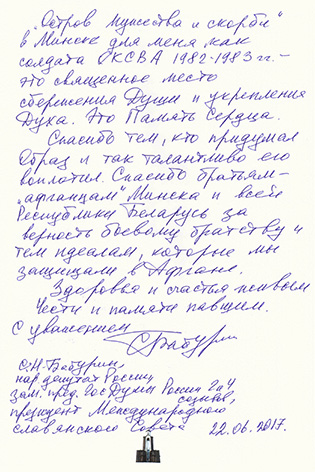 „Остров мужества и скорби"
в Минске для меня как
солдата ОКСВА 1982-1983 гг. –
это священное место
сбережения Души и укрепления
Духа. Это Память Сердца.
Спасибо тем, кто придумал
Образ и так талантливо его
воплотил. Спасибо братьям-
„афганцам" Минска и всей
Республики Беларусь за
верность боевому братству и
тем идеалам, которые мы
защищали в Афгане.
Здоровья и счастья живым
Чести и памяти павшим.
С уважением
СБабурин
С.Н. Бабурин,
нар. депутат России,
зам. пред. ГосДумы России 2 и 4
созывов,
президент Международного
славянского Совета 22.06.2017.